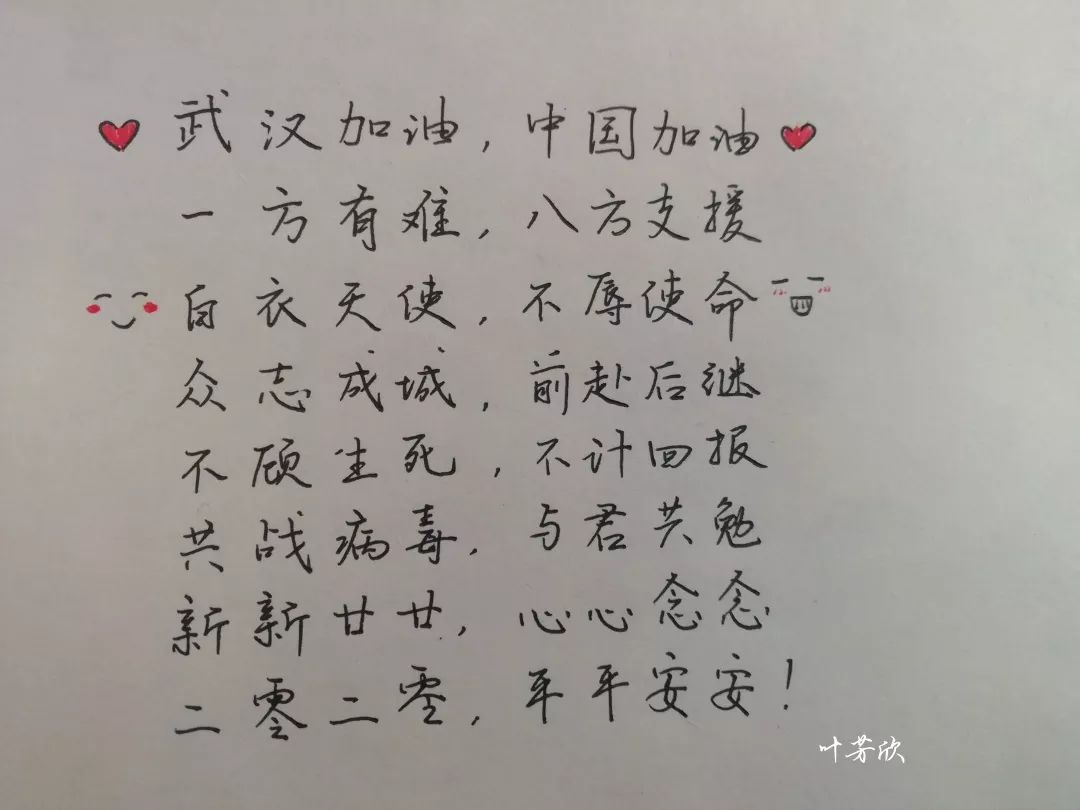 武汉加油,中国加油
一方有难,八方支援
白衣天使,不辱使命
众志成城,前赴后继
不顾生死,不计回报
共战病毒,与君共勉
新新廿廿,心心念念
二零二零,平平安安!
叶芳欣